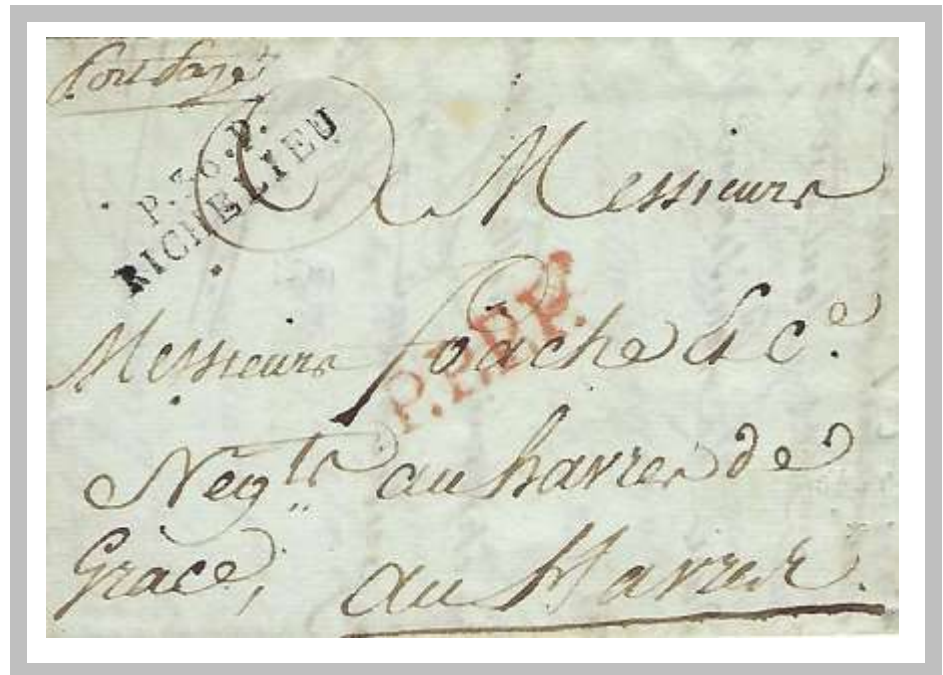 Port payé
P.36.P.
RICHELIEU
Messieurs
P.P.P.P.
Messieurs foäche & Ce.
Negts au havre de
Grace,
au Havre.